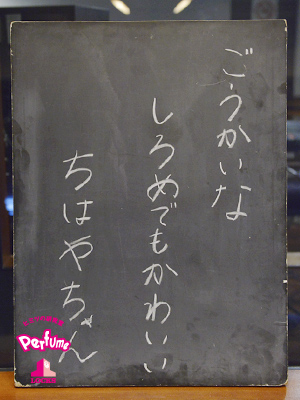 ごうかいな
しろめでもかわいい
ちはやちゃん
Perfume